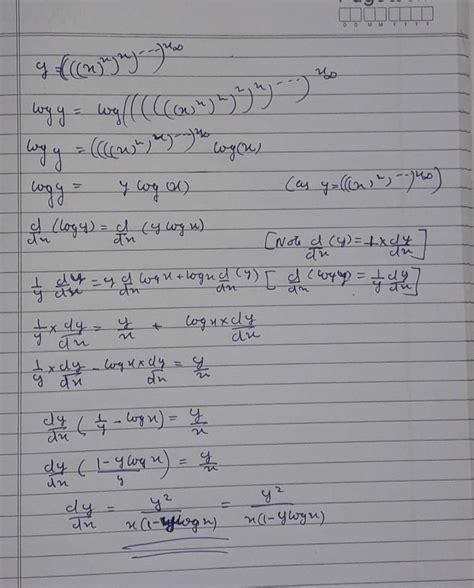 y = (((x)^x)^x)^---)^x∞
log y = log((((((x)^x)^2)^2)^x)^---)^x∞
log y = ((((x)^2)^x)^---)^x∞ log(x)
log y = y log(x) (as y=((x)^2, ---)^x∞)
d/dx (log y) = d/dx (y log x) [Note d/dx (y) = 1 x dy/dx]
1/y dy/dx = y d/dx log x + log x d/dx (y) [d/dx (log y) = 1/y dy/dx]
1/y x dy/dx = y/x + log x x dy/dx
1/y x dy/dx - log x x dy/dx = y/x
dy/dx (1/y - log x) = y/x
dy/dx (1-y log x / y) = y/x
dy/dx = y²/x(1-y log x) = y²/x(1-y log x)